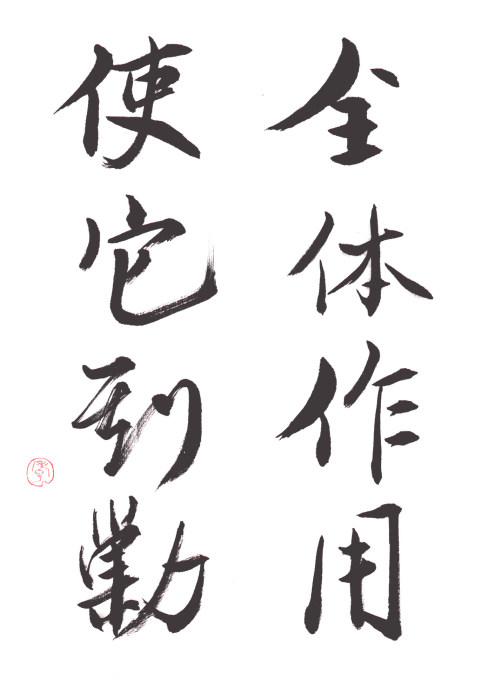 全体作用
使它到